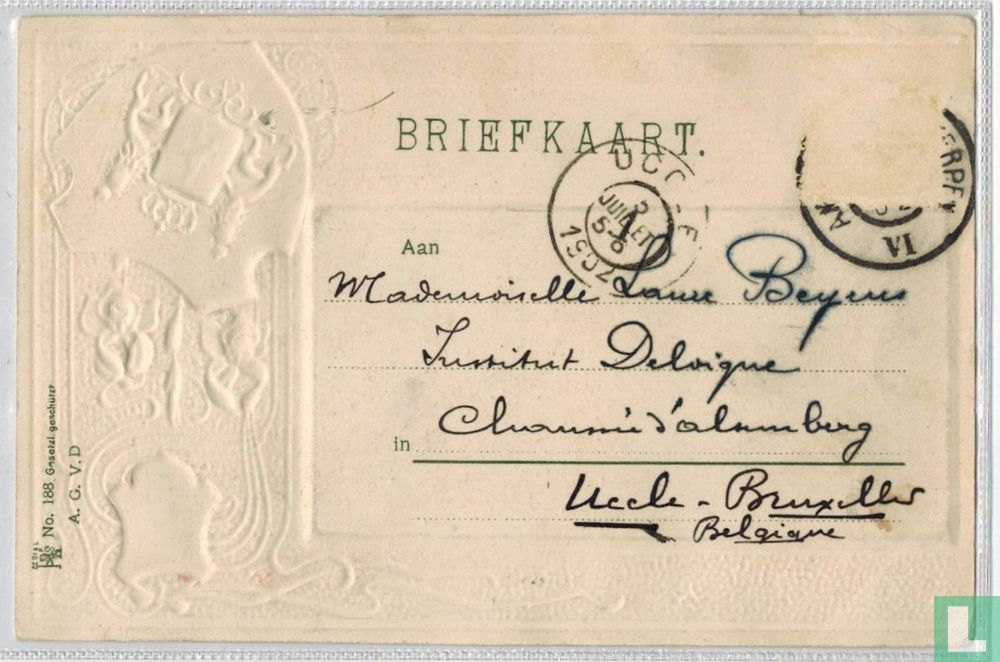 BRIEFKAART.
UCCLE
3
JUILLET
5-6
1902
1
VI
Aan
Mademoiselle Laure Beyens
Institut Delvigne
Chaussée d'alsemberg
in
Uccle - Bruxelles
Belgique
No. 188 Gesetzl. geschützt
A. G. V. D
L